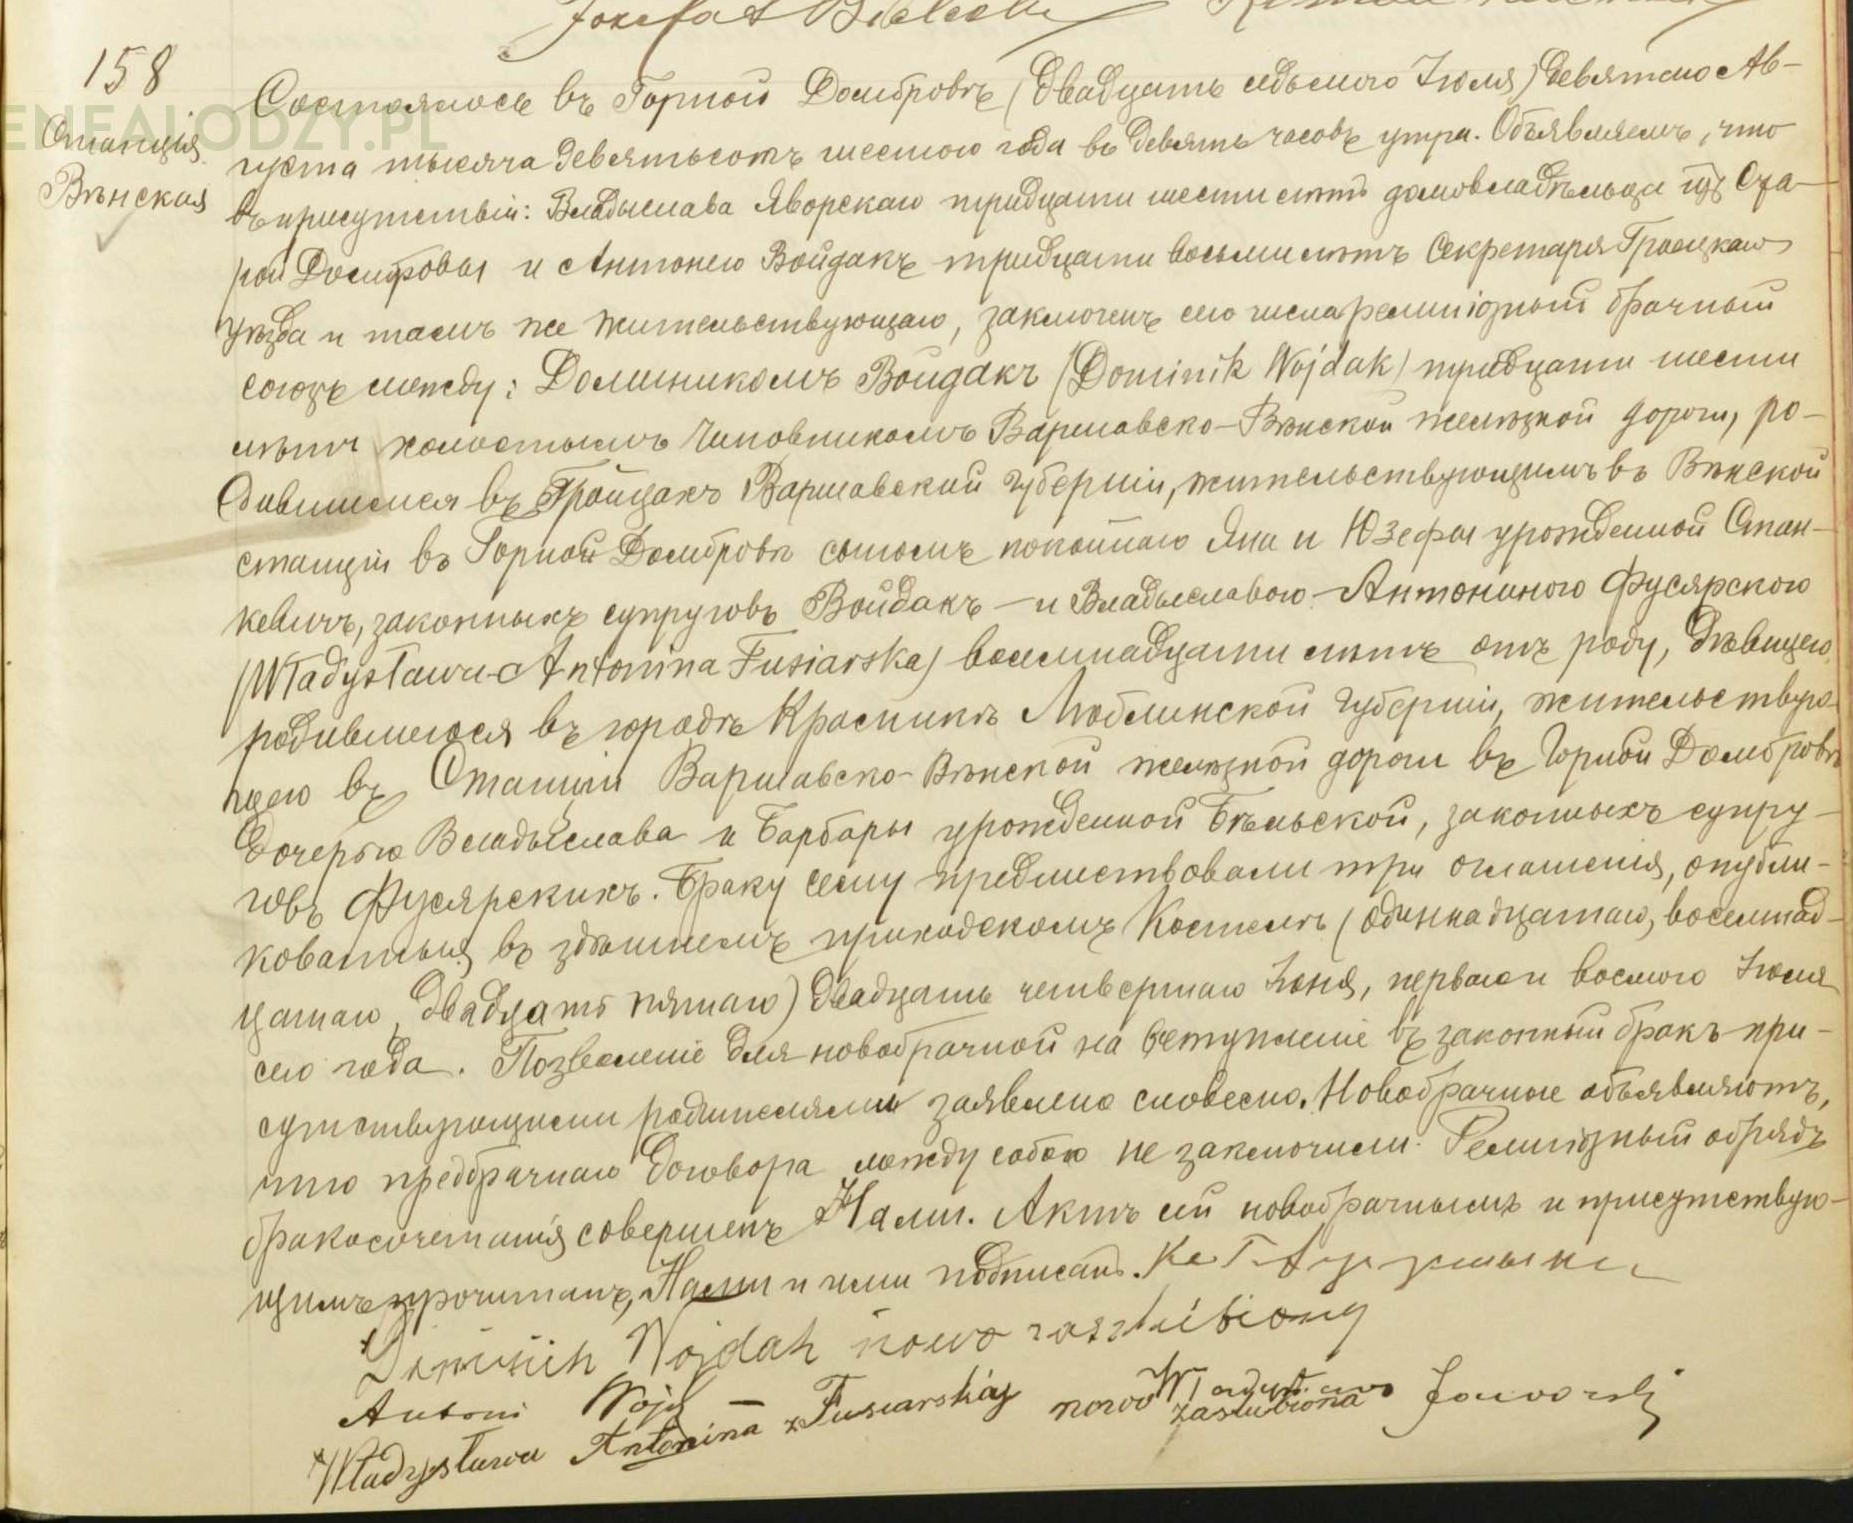 Józefat
158
Станція
Вѣнская
GENEALODZY.PL
Состоялось въ Горной Домбровѣ (двадцать седьмого Іюля) девятаго Ав-
густа тысяча девятьсотъ шестого года въ девять часовъ утра. Объявляемъ, что
въ присутствіи: Владыслава Яворскаго тридцати шести лѣтъ домовладѣльца изъ Ста-
рой Домбровы и Антонего Войдакъ тридцати восьми лѣтъ Секретаря Гроецкаго
уѣзда и тамъ же жительствующаго, заключенъ сего числа религіозный брачный
союзъ между: Доминикомъ Войдакъ (Dominik Wojdak) тридцати шести
лѣтъ холостымъ чиновникомъ Варшавско-Вѣнской желѣзной дороги, ро-
дившимся въ Гройцахъ Варшавской губерніи, жительствующимъ въ Вѣнской
станціи въ Горной Домбровѣ сыномъ покойнаго Яна и Юзефы урожденной Стан-
кевичъ, законныхъ супруговъ Войдакъ — и Владыславою-Антониною Фусярскою
(Władysława-Antonina Fusiarska) восемнадцати лѣтъ отъ роду, дѣвицею,
родившеюся въ городѣ Красникѣ Люблинской губерніи, жительствую-
щею въ Станціи Варшавско-Вѣнской желѣзной дороги въ Горной Домбровѣ
дочерью Владыслава и Барбары урожденной Бѣльской, законныхъ супру-
говъ Фусярскихъ. Браку сему предшествовали три оглашенія, опубли-
кованныя въ здѣшнемъ приходскомъ Костелѣ (одиннадцатаго, восемнад-
цатаго, двадцать пятаго) двадцать четвертаго Іюня, перваго и восьмого Іюля
сего года. Позволеніе для новобрачной на вступленіе въ законный бракъ при-
сутствующими родителями заявлено словесно. Новобрачные объявляютъ,
что предбрачнаго договора между собою не заключили. Религіозный обрядъ
бракосочетанія совершенъ Нами. Актъ сей новобрачнымъ и присутствую-
щимъ прочитанъ, Нами и ими подписанъ. Кс Г.
Dominik Wojdak nowo zaszlubiony
Antoni Wojd — Władysław Jaworski
Władysława Antonina z Fusiarskich nowo zaślubiona